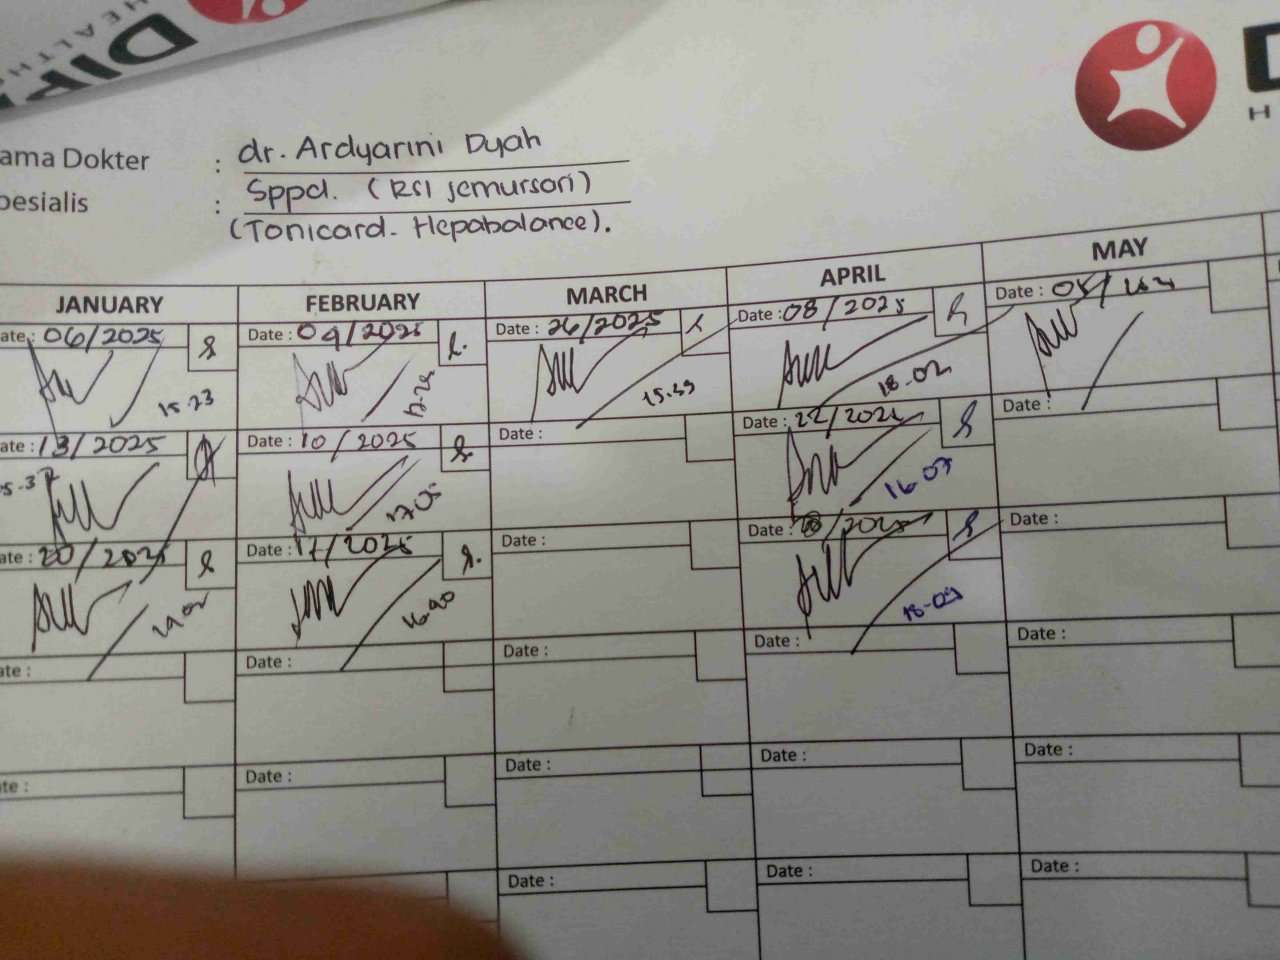 DIP
HEALTH
D
H
ama Dokter : dr. Ardyarini Dyah
pesialis : Sppd. (RSI jemursari)
(Tonicard. Hepabalance).
JANUARY FEBRUARY MARCH APRIL MAY
ate: 06/2025 Date: 04/2025 Date: 26/2025 Date: 08/2025 Date: 05/
15.23 15.39 18.02
ate: 13/2025 Date: 10/2025 Date: Date: 22/202 Date:
17.05 16.07
ate: 20/2025 Date: 17/2025 Date: Date: /2025 Date:
16.40 18.09
ate: Date: Date: Date: Date:
ate: Date: Date: Date: Date:
Date: Date: Date: